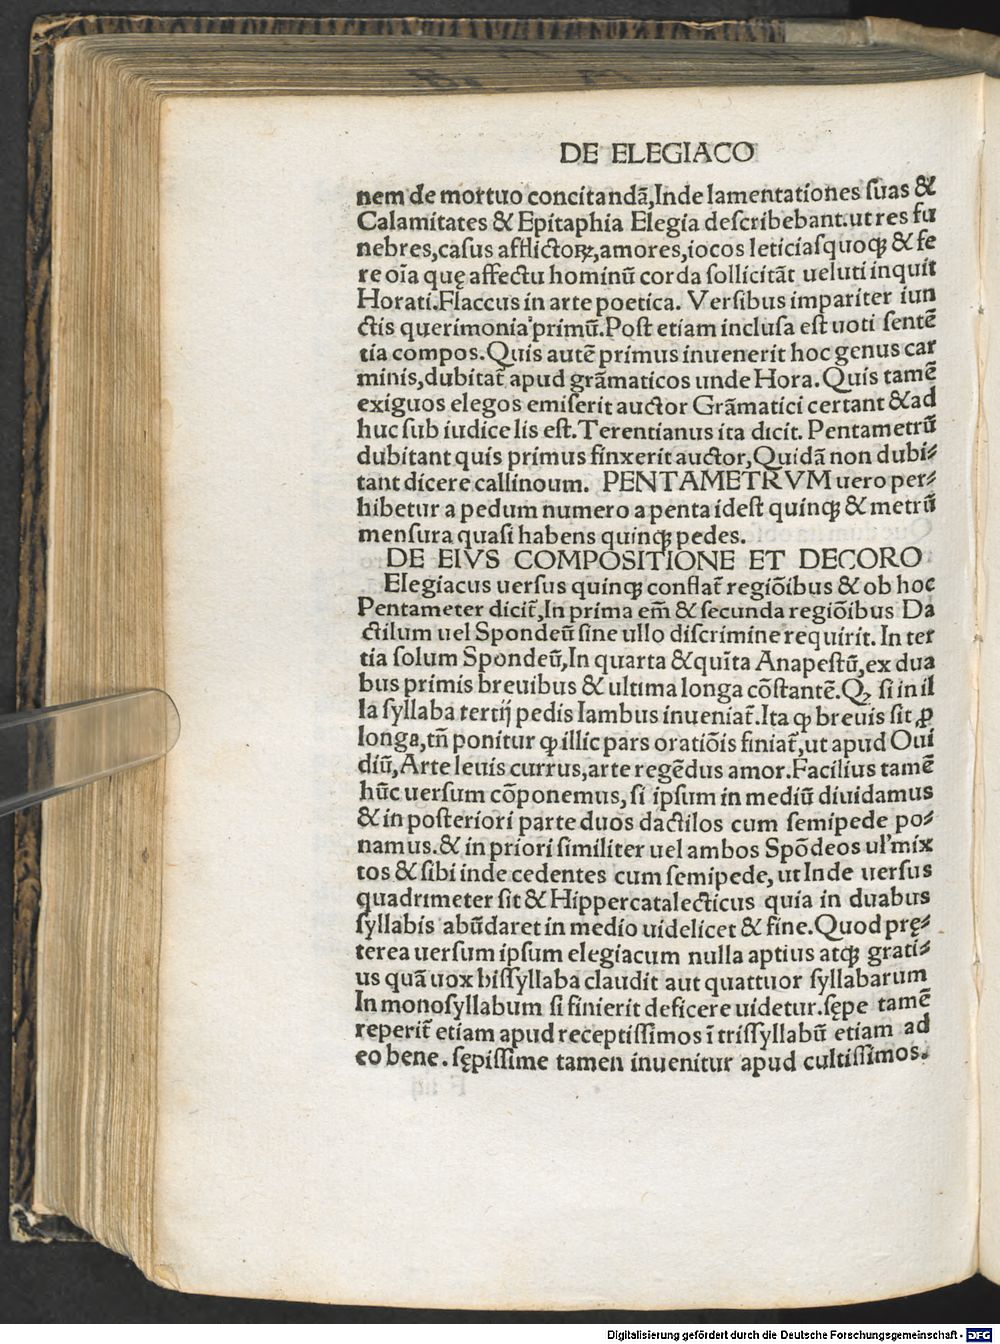 DE ELEGIACO
nem de mortuo concitandã,Inde lamentationes ſuas &
Calamitates & Epitaphia Elegia deſcribebant.ut res fu
nebres,caſus afflictoꝝ,amores,iocos leticiaſquoqꝫ & fe
re oĩa quę affectu hominũ corda ſollicitãt ueluti inquit
Horati.Flaccus in arte poetica. Verſibus impariter iun
ctis querimonia primũ.Poſt etiam incluſa eſt uoti ſentẽ
tia compos.Quis autẽ primus inuenerit hoc genus car
minis,dubitat̃ apud grãmaticos unde Hora.Quis tamẽ
exiguos elegos emiſerit auctor Grãmatici certant & ad
huc ſub iudice lis eſt.Terentianus ita dicit. Pentametrũ
dubitant quis primus finxerit auctor,Quidã non dubi⸗
tant dicere callinoum. PENTAMETRVM uero per⸗
hibetur a pedum numero a penta ideſt quinqꝫ & metrũ
menſura quaſi habens quinqꝫ pedes.
DE EIVS COMPOSITIONE ET DECORO
Elegiacus uerſus quinqꝫ conflat̃ regiõibus & ob hoc
Pentameter dicit̃,In prima em̃ & ſecunda regiõibus Da
ctilum uel Spondeũ ſine ullo diſcrimine requirit.In ter
tia ſolum Spondeũ,In quarta & quĩta Anapeſtũ,ex dua
bus primis breuibus & ultima longa cõſtantẽ.Qꝫ ſi in il
la ſyllaba tertij pedis Iambus inueniat̃.Ita ꝙ breuis ſit ꝓ
longa,tñ ponitur ꝙ illic pars oratiõis finiat̃,ut apud Oui
diũ,Arte leuis currus,arte regẽdus amor.Facilius tamẽ
hũc uerſum cõponemus,ſi ipſum in mediũ diuidamus
& in poſteriori parte duos dactilos cum ſemipede po⸗
namus.& in priori ſimiliter uel ambos Spõdeos ul' mix
tos & ſibi inde cedentes cum ſemipede, ut Inde uerſus
quadrimeter ſit & Hippercatalecticus quia in duabus
ſyllabis abũdaret in medio uidelicet & fine.Quod prę⸗
terea uerſum ipſum elegiacum nulla aptius atqꝫ grati⸗
us quã uox biſſyllaba claudit aut quattuor ſyllabarum
In monoſyllabum ſi finierit deficere uidetur.ſępe tamẽ
reperit̃ etiam apud receptiſſimos ĩ triſſyllabũ etiam ad
eo bene. ſępiſſime tamen inuenitur apud cultiſſimos.
Digitalisierung gefördert durch die Deutsche Forschungsgemeinschaft - DFG